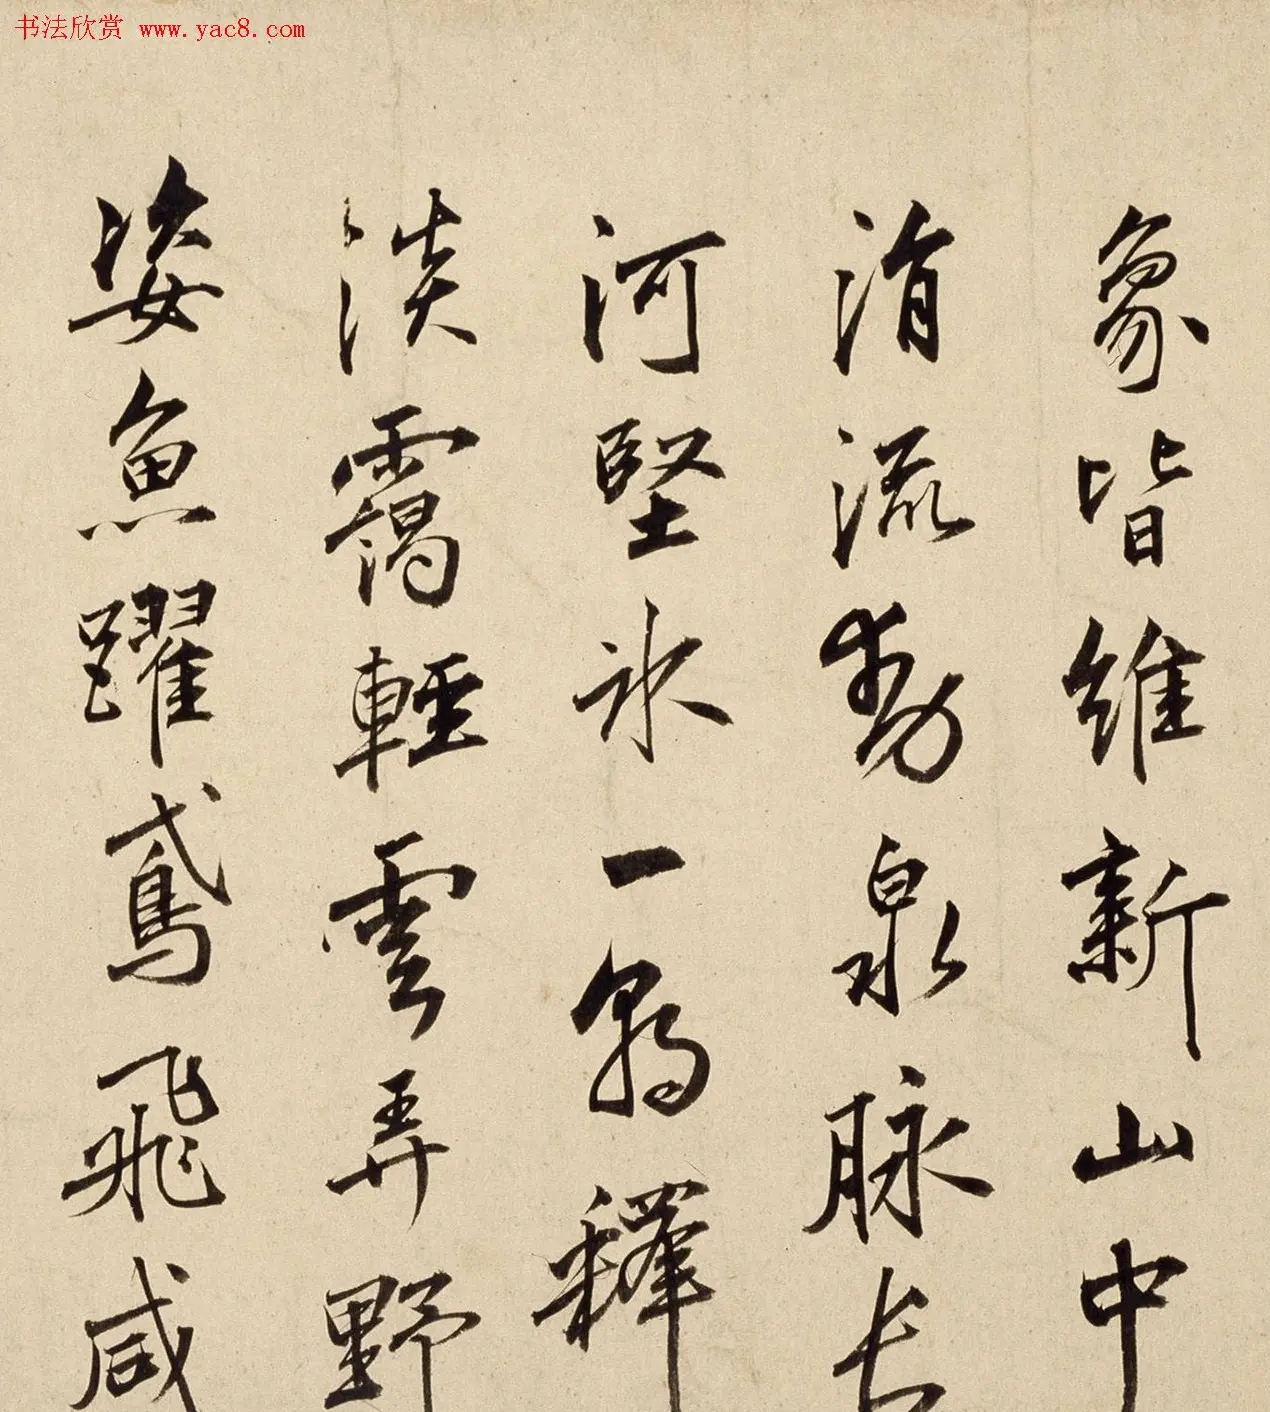 书法欣赏 www.yac8.com
象皆維新山中
涓流動泉脉长
河堅氷一朝釋
淡靄輕雲弄野
姿魚躍鳶飛咸